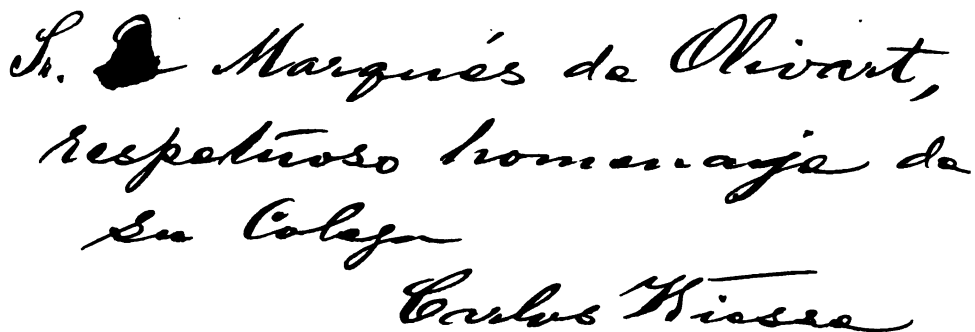 Sr. Marqués de Olivart,
respetuoso homenaje de
su Colega
Carlos Wiesse